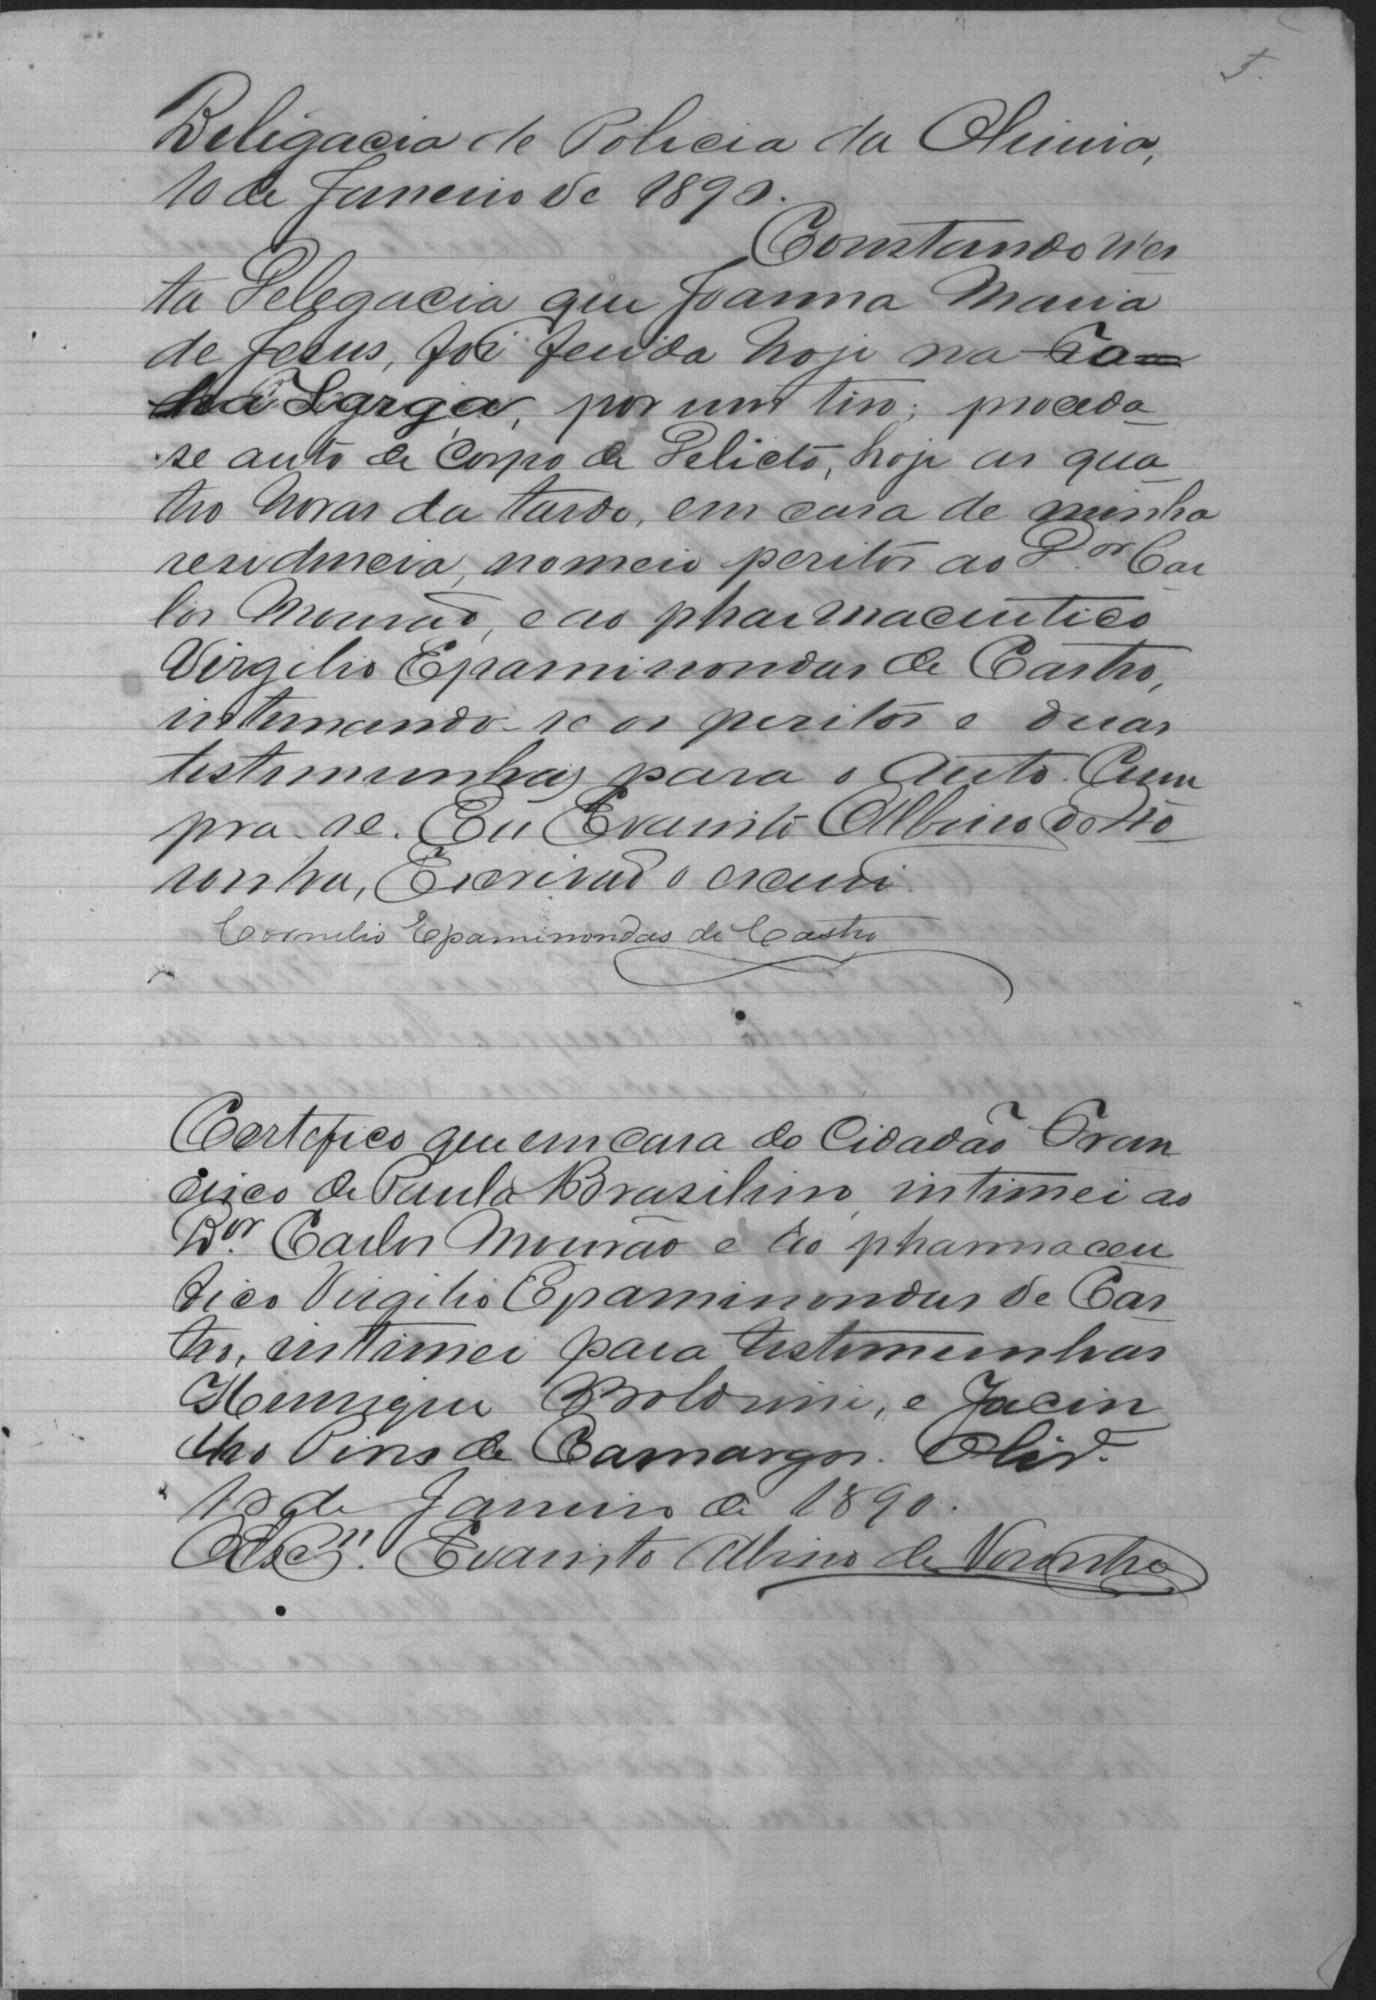 Deligacia de Policia da Oliveira,
10 de Janeiro de 1890.
Constando n'es
ta Delegacia que Joanna Maria
de Jesus, foi ferida hoje na
Larga, por um tiro; proceda
se auto de corpo de Delicto, hoje as qua
tro horas da tarde, em casa de minha
residencia, nomeio peritos ao D.or Car
los Mourão, e ao pharmaceutico
Virgilio Epaminondas de Castro,
intimando-se os peritos e duas
testimunhas para o auto. Cum
pra-se. Eu Evaristo Albino de No
ronha, Escrivão o escrevi.
Cornelio Epaminondas de Castro
Certefico que em casa do Cidadão Fran
cisco de Paula Brasilino, intimei ao
D.or Carlos Mourão e ao pharmaceu
tico Virgilio Epaminondas de Cas
tro, intimei para testimunhas
Henrique Boldrini, e Jacin
tho Pins de Camargos. Oliv.ª
10 de Janeiro de 1890.
O Esc.m Evaristo Albino de Noronha